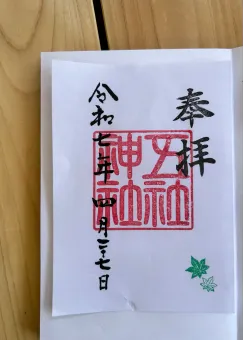 奉拝
五社
神社
令和七年四月二十七日